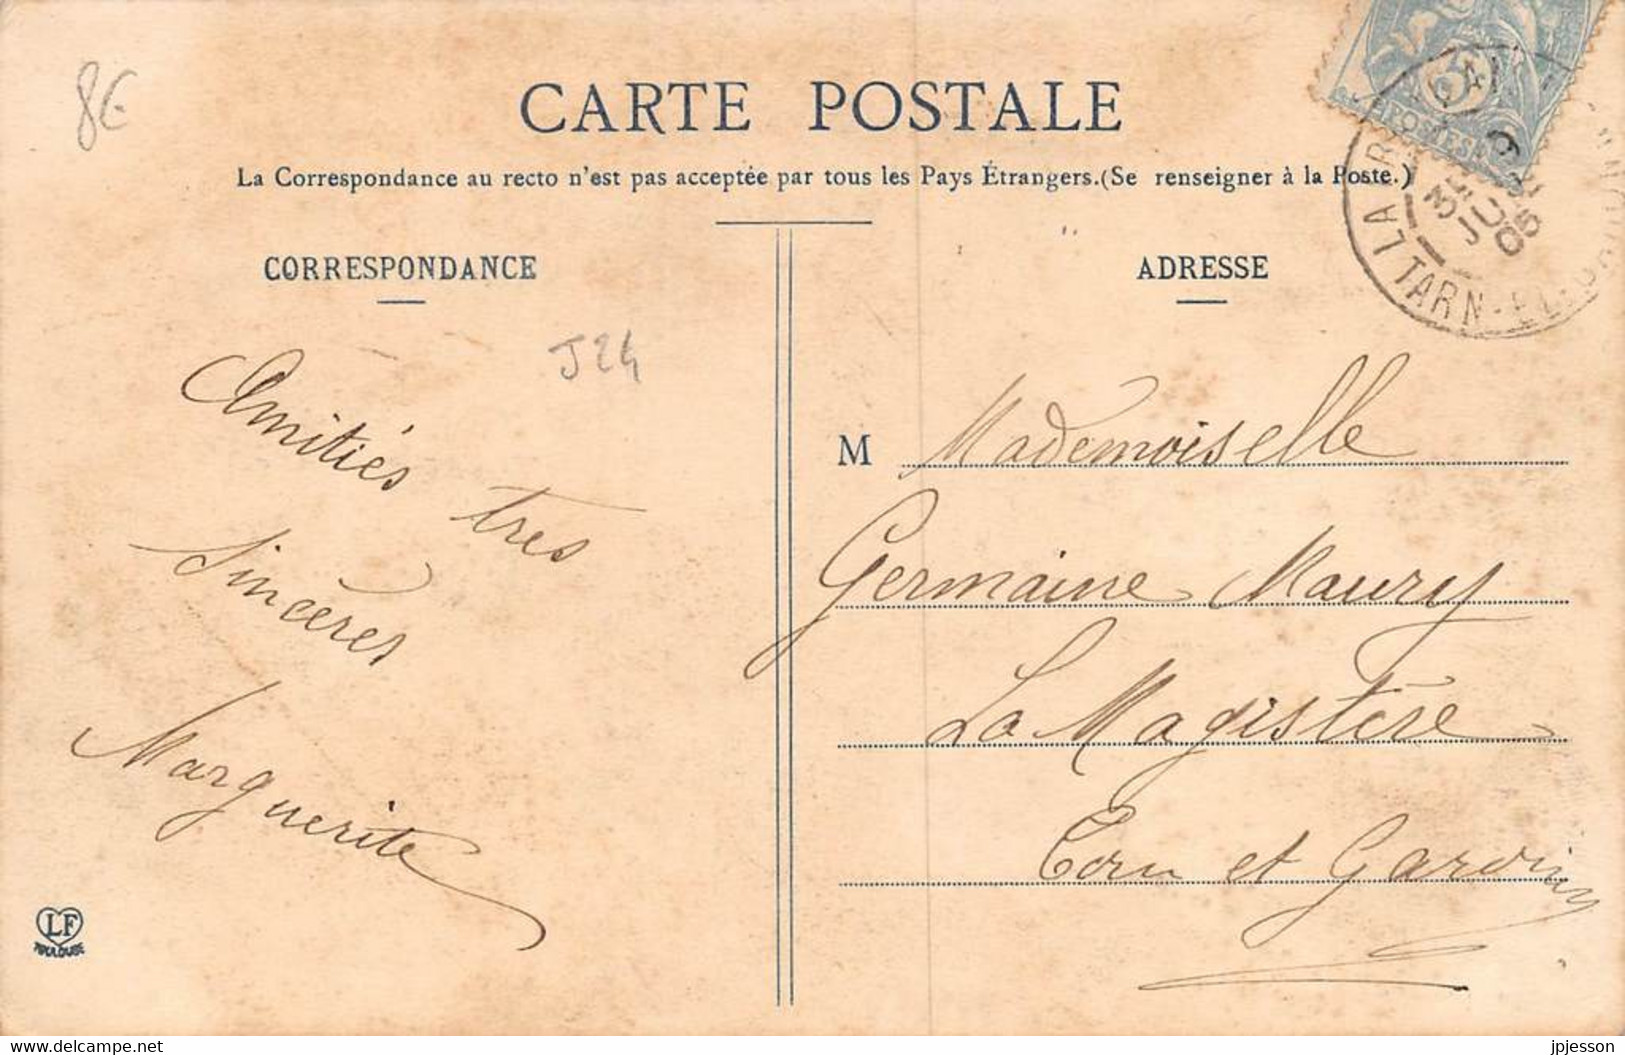 8€
CARTE POSTALE
La Correspondance au recto n'est pas acceptée par tous les Pays Étrangers.(Se renseigner à la Poste.)
CORRESPONDANCE
J24
Amitiés très
sincères
Marguerite
LF
TOULOUSE
ADRESSE
LA
TARN-ET-
JUIL
05
M Mademoiselle
Germaine Maury
La Magistère
Tarn et Garonne
delcampe.net
jpjesson